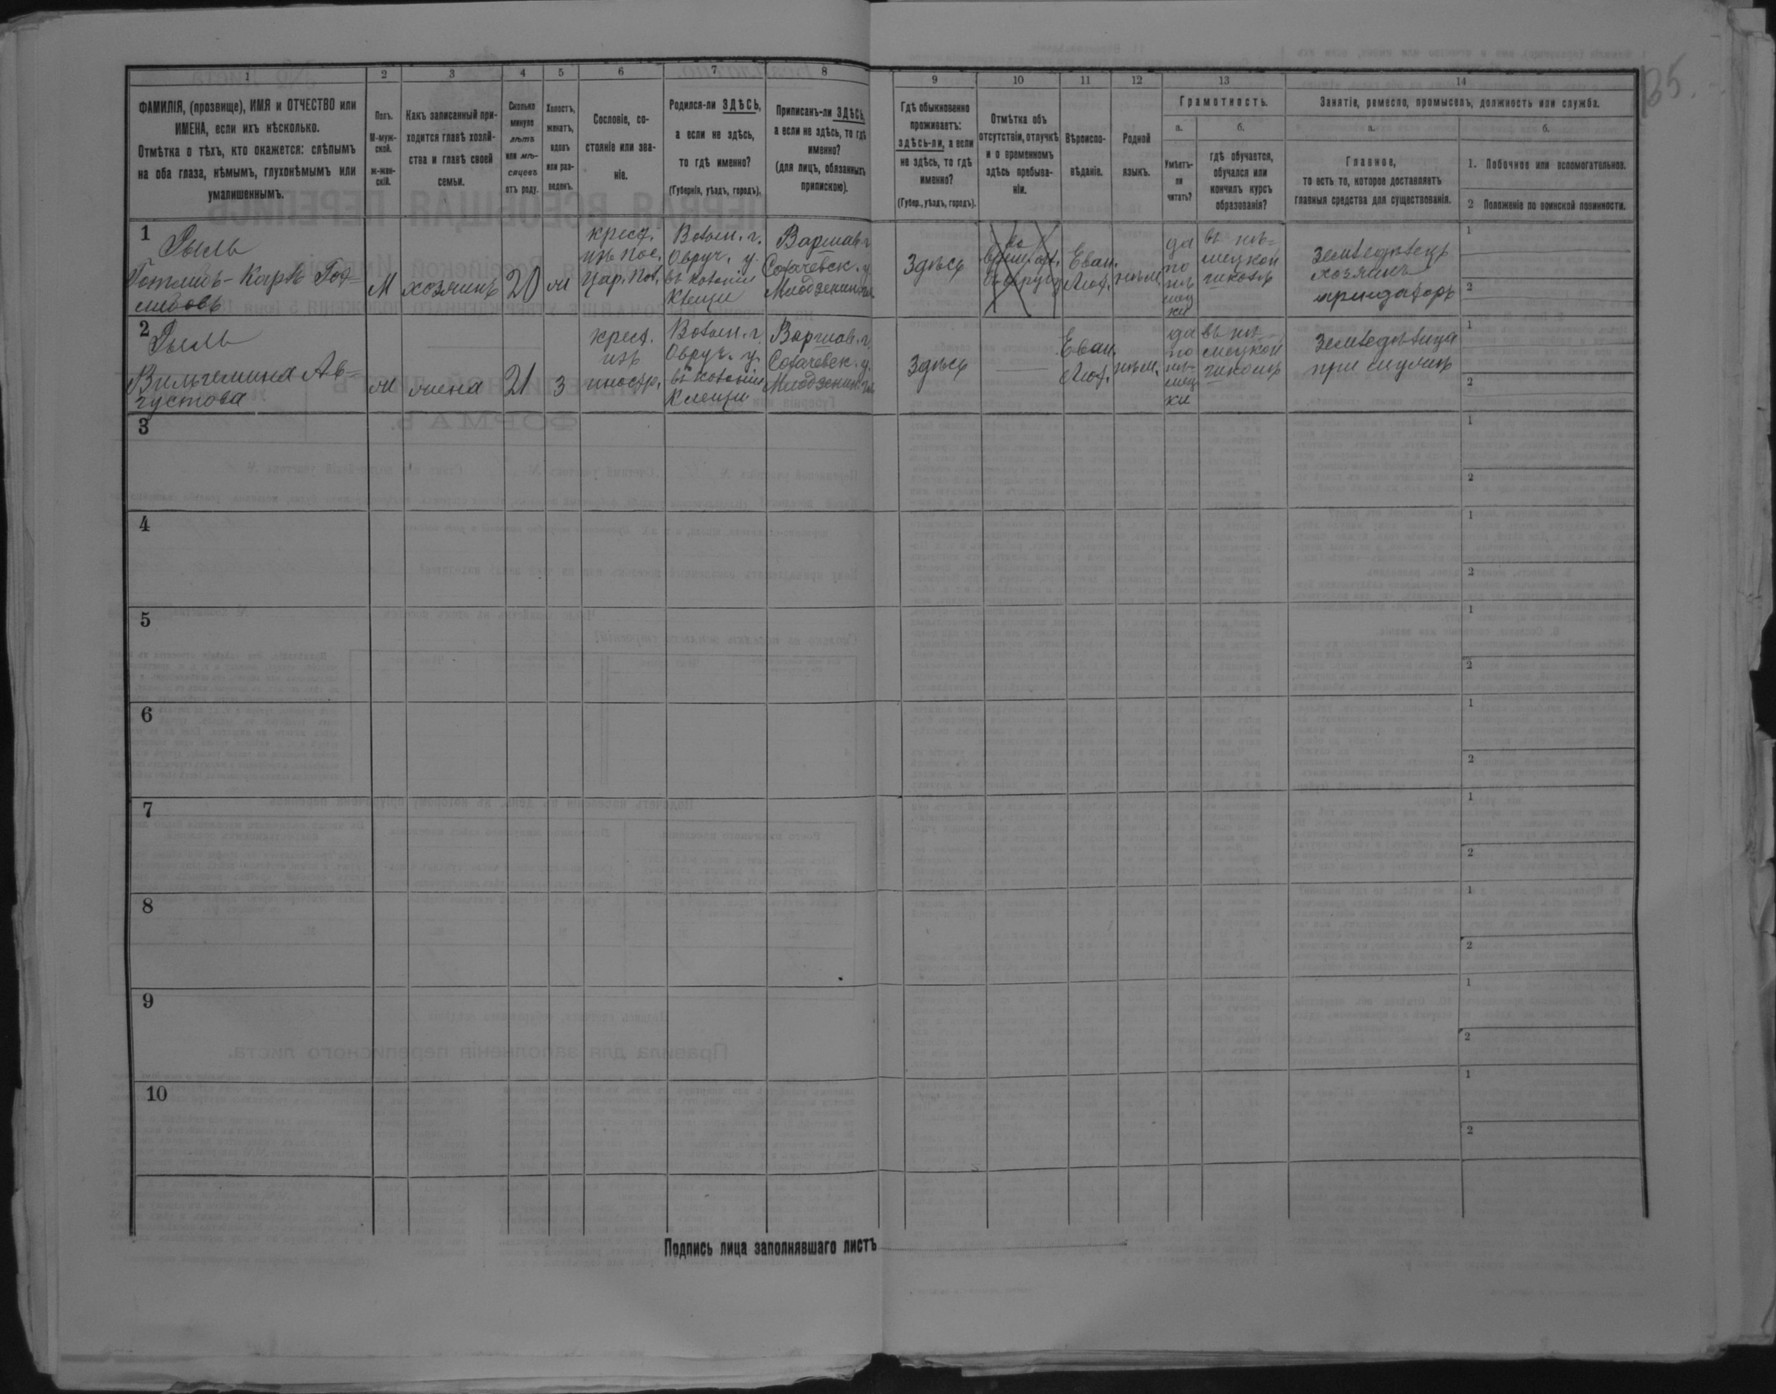 1
2
3
4
5
6
7
8
9
10
11
12
13
14
ФАМИЛІЯ, (прозвище), ИМЯ и ОТЧЕСТВО или
ИМЕНА, если ихъ нѣсколько.
Отмѣтка о тѣхъ, кто окажется: слѣпымъ
на оба глаза, нѣмымъ, глухонѣмымъ или
умалишеннымъ.
Полъ.
М-муж-
ской.
ж-жен-
скій.
Какъ записанный при-
ходится главѣ хозяй-
ства и главѣ своей
семьи.
Сколько
минуло
лѣтъ
или мѣ-
сяцевъ
отъ роду.
Холостъ,
женатъ,
вдовъ
или раз-
веденъ.
Сословіе, со-
стояніе или зва-
ніе.
Родился-ли ЗДѢСЬ,
а если не здѣсь,
то гдѣ именно?
(Губернія, уѣздъ, городъ).
Приписанъ-ли ЗДѢСЬ,
а если не здѣсь, то гдѣ
именно?
(для лицъ, обязанныхъ
припискою).
Гдѣ обыкновенно
проживаетъ:
здѣсь-ли, а если
не здѣсь, то гдѣ
именно?
(Губер., уѣздъ, городъ).
Отмѣтка объ
отсутствіи, отлучкѣ
и о временномъ
здѣсь пребыва-
ніи.
Вѣроиспо-
вѣданіе.
Родной
языкъ.
Грамотность.
а.
Умѣетъ-
ли
читать?
б.
гдѣ обучается,
обучался или
кончилъ курсъ
образованія?
Занятіе, ремесло, промыселъ, должность или служба.
а.
Главное,
то есть то, которое доставляетъ
главныя средства для существованія.
б.
1. Побочное или вспомогательное.
2 Положеніе по воинской повинности.
1
Рыль
Готлибъ-Карлъ Гот-
либовъ
М
хозяинъ
20
ж
крест.
изъ пос.
Цар. Пол.
Волын. г.
Овруч. у.
въ колоніи
Клещи
Варшав. г.
Сохачевск. у.
Здѣсь
Еван.
Лют.
нѣм.
да
по
нѣ-
мец
ки
въ нѣ-
мецкой
школѣ
Земледѣлецъ
хозяинъ
арендаторъ
1
2
2
Рыль
Вильгемина Ав-
густова
ж
жена
21
з
крест.
изъ
иностр.
Волын. г.
Овруч. у.
въ колоніи
Клещи
Варшав. г.
Сохачевск. у.
Здѣсь
Еван.
Лют.
нѣм.
да
по
нѣ-
мец-
ки
въ нѣ-
мецкой
школѣ
Земледѣлица
при мужѣ
1
2
3
1
2
4
1
2
5
1
2
6
1
2
7
1
2
8
1
2
9
1
2
10
1
2
Подпись лица заполнявшаго листъ